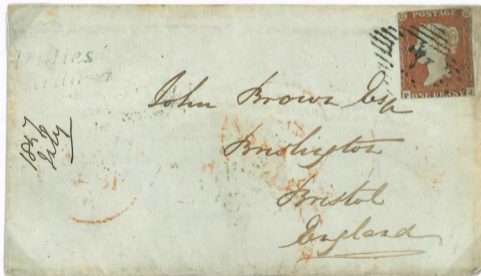 POSTAGE
ONE PENNY
John Brown Esq
Brislington
Bristol
England
1847
July